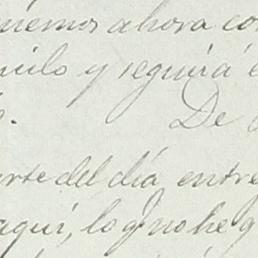 nemos ahora co
uilo y seguirá e
. De
arte del día entre
aquí, lo q no he q